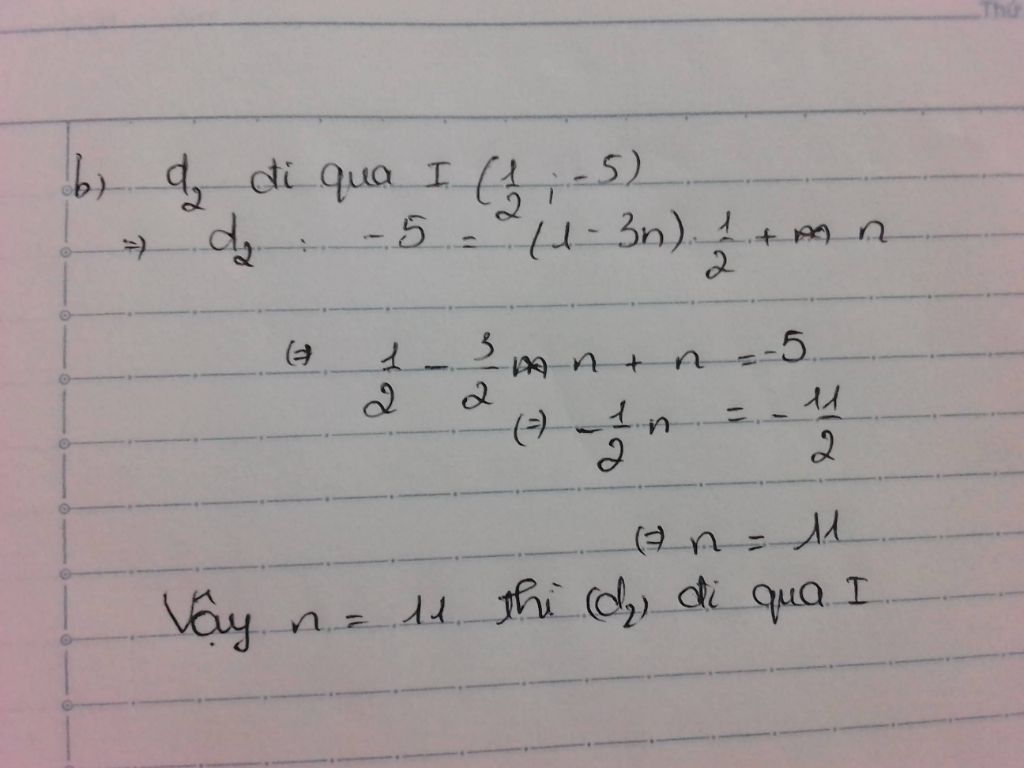 Thứ
b) d₂ đi qua I (1/2 ; -5)
=> d₂ : -5 = (1 - 3n) . 1/2 + n
(=) 1/2 - 3/2 n + n = -5
(=) -1/2 n = -11/2
(=) n = 11
Vậy n = 11 thì (d₂) đi qua I